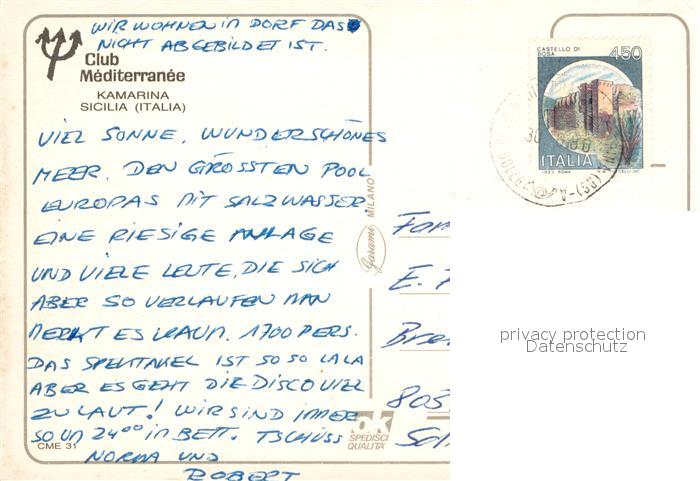 WIR WOHNEN in DORF DAS
NICHT ABGEBILDET IST.
Club
Méditerranée
KAMARINA
SICILIA (ITALIA)
VIEL SONNE, WUNDERSCHÖNES
MEER, DEN GRÖSSTEN POOL
EUROPAS MIT SALZWASSER,
EINE RIESIGE ANLAGE
UND VIELE LEUTE, DIE SICH
ABER SO VERLAUFEN MAN
MERKT ES KAUM. 1700 PERS.
DAS SPEKTAKEL IST SO SO LALA
ABER ES GEHT DIE DISCO VIEL
ZU LAUT! WIR SIND IMMER
SO UM 24⁰⁰ im BETT. TSCHÜSS
NORMA UND
ROBERT
CME 31
Garami MILANO
ok
SPEDISCI
QUALITÀ
CASTELLO DI
BOSA
450
ITALIA
E.
803
privacy protection
Datenschutz